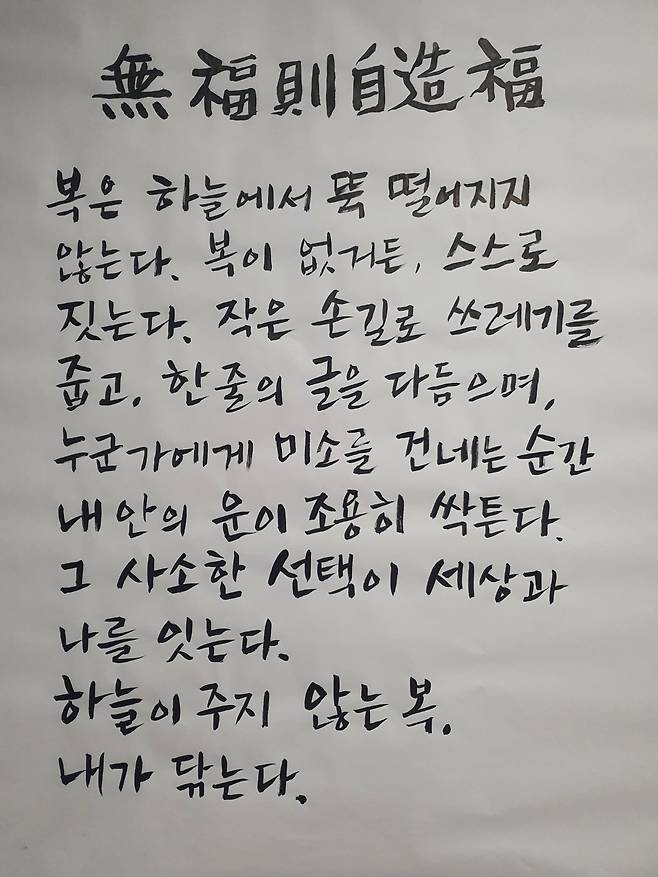 無福則自造福
복은 하늘에서 뚝 떨어지지
않는다. 복이 없거든, 스스로
짓는다. 작은 손길로 쓰레기를
줍고, 한 줄의 글을 다듬으며,
누군가에게 미소를 건네는 순간
내 안의 운이 조용히 싹튼다.
그 사소한 선택이 세상과
나를 잇는다.
하늘이 주지 않는 복,
내가 닦는다.